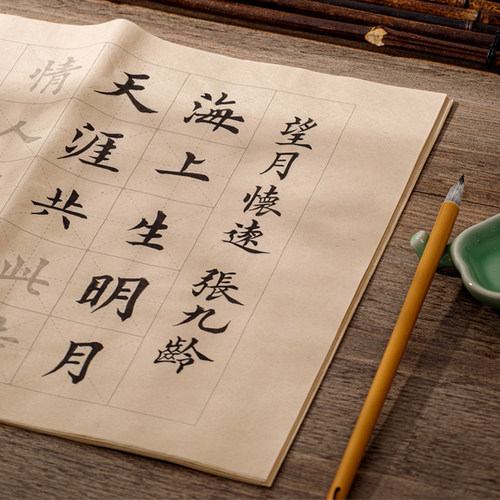 望月懷遠 張九齡
海上生明月
天涯共此
情人